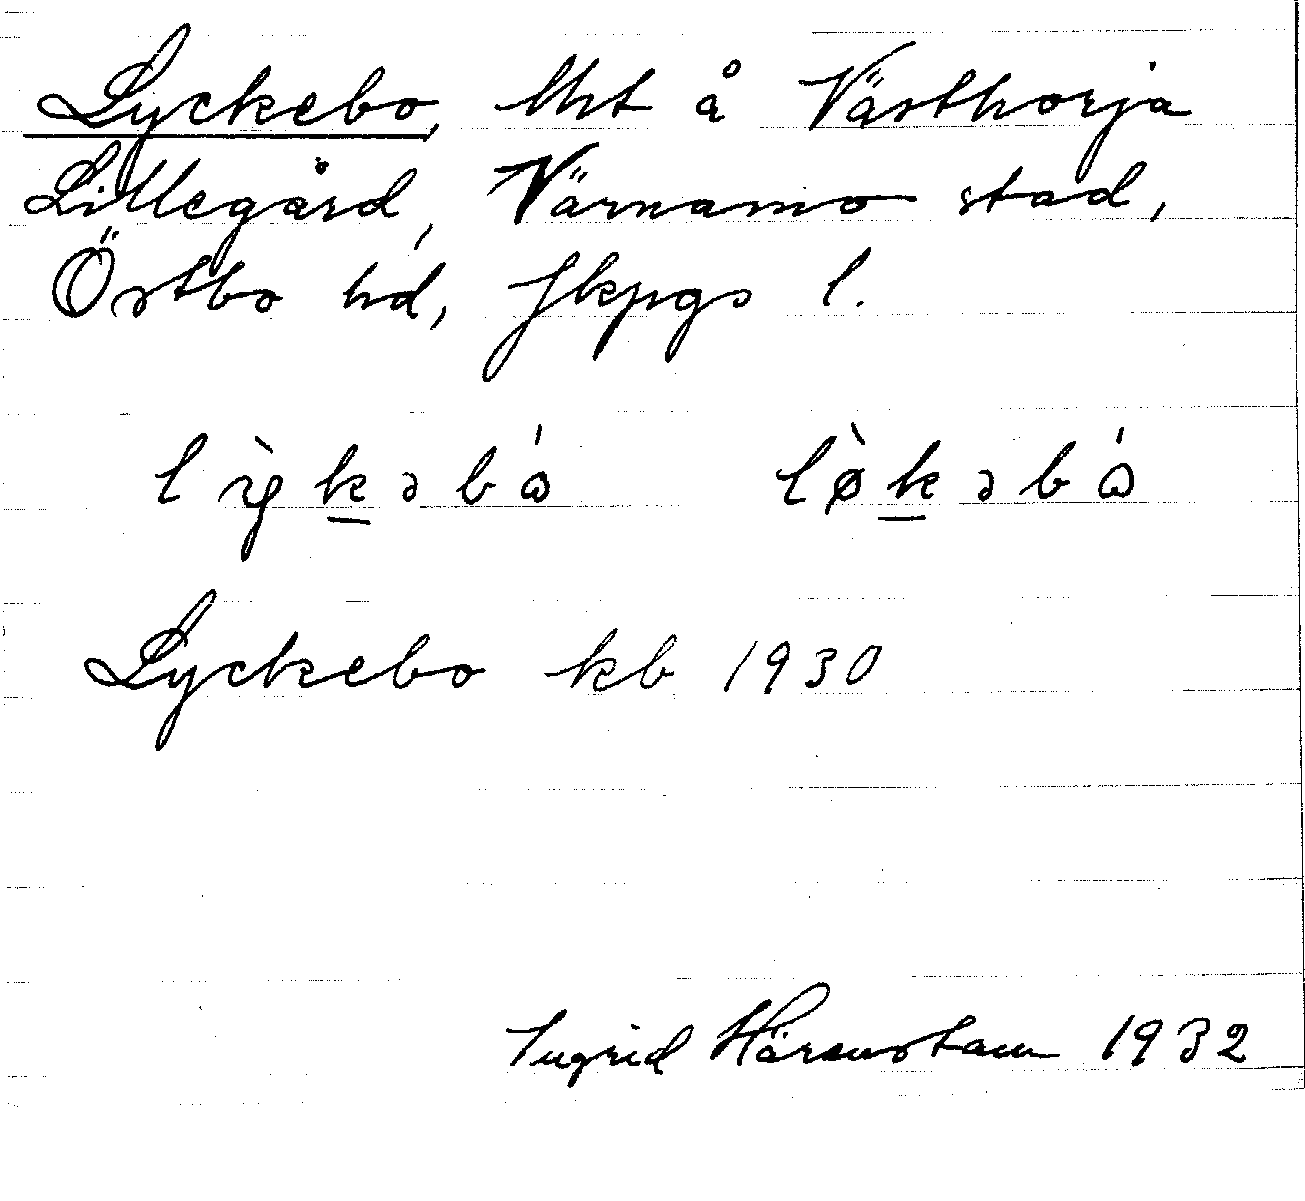 Lyckebo, lht å Västhorja
Lillegård, Värnamo stad,
Östbo hd, Jkpgs l.
lỳkəbó lø̀kəbó
Lyckebo kb 1930
Ingrid Härenstam 1932